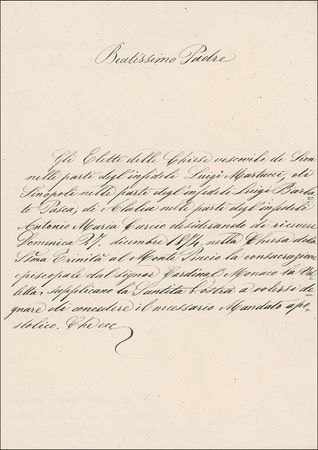 Beatissimo Padre
Gli Eletti delle Chiese vescovili di
nelle parte degl'infedeli Luigi Martucci, di
Sinopoli nelle parte degl'infedeli Luigi Barba
to Pasca, di Alalia nelle parte degl'infedeli
Antonio Maria Curcio desiderando di ricevere
Domenica 27. dicembre 1874. nella Chiesa della
SSma Trinità al Monte Pincio la consacrazione
episcopale dal signor Cardinal Monaco la Va
letta, supplicano la Santità Vostra a volersi de
gnare di concedere il necessario Mandato apo
stolico. Che ecc